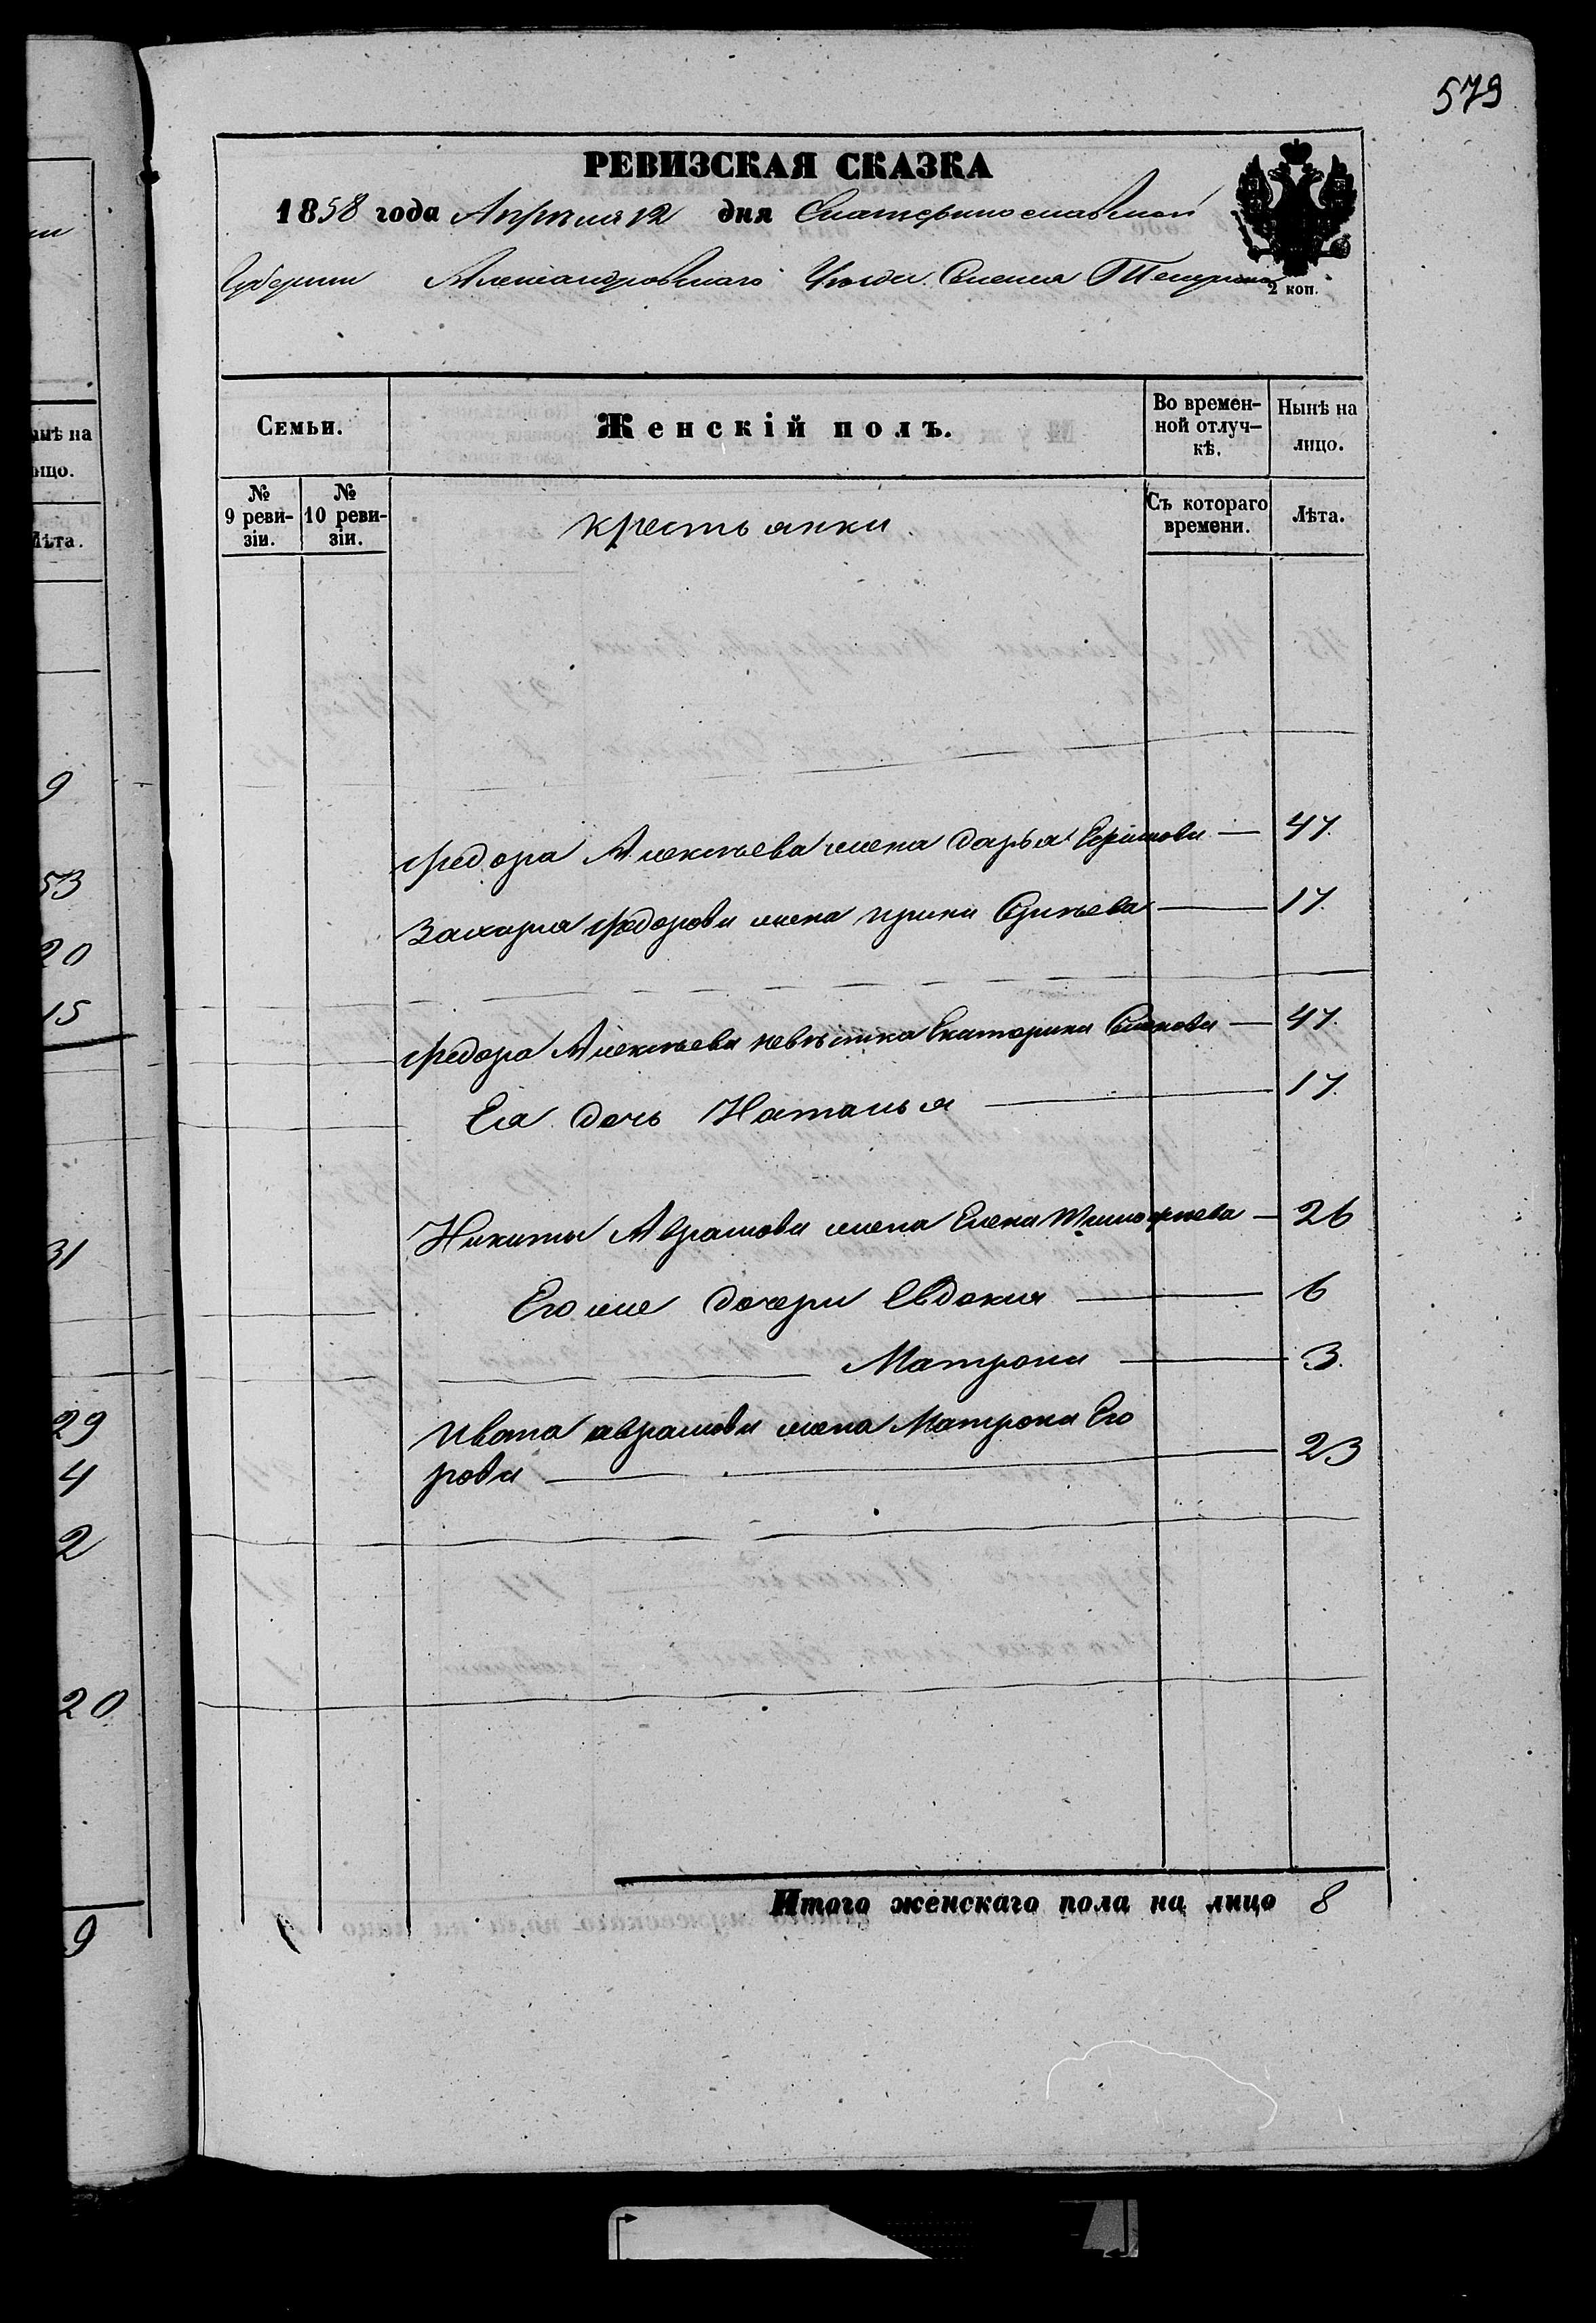 579
РЕВИЗСКАЯ СКАЗКА
1858 года Апрѣля 12 дня Екатеринославской
Губерніи Александровскаго Уѣзда Селенія
2 коп.
Семьи.
Женскій полъ.
Во времен-
ной отлуч-
кѣ.
Нынѣ на
лицо.
№
9 реви-
зіи.
№
10 реви-
зіи.
крестьянки
Съ котораго
времени.
Лѣта.
Федора Алексѣева жена Дарья Ефимова — 47.
Захарія Федорова жена Ирина — 17.
Федора Алексѣева невѣстка Екатерина — 47.
Ея дочь Наталья — 17.
Никиты Аврамова жена Елена Тимофѣева — 26
Его же дочери Евдокия — 6
Матрона — 3.
Ивана Аврамова жена Матрона Его
рова — 23
Итого женскаго пола на лицо 8
нѣ на
лицо.
Лѣта.
9
53
20
15
31
29
4
2
20
9